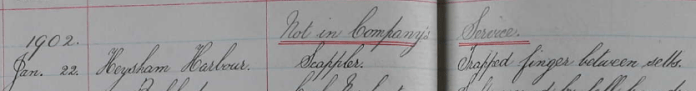 Not in Company's Service.
1902.
Jan. 22. Heysham Harbour. Scappler. Trapped finger between setts.